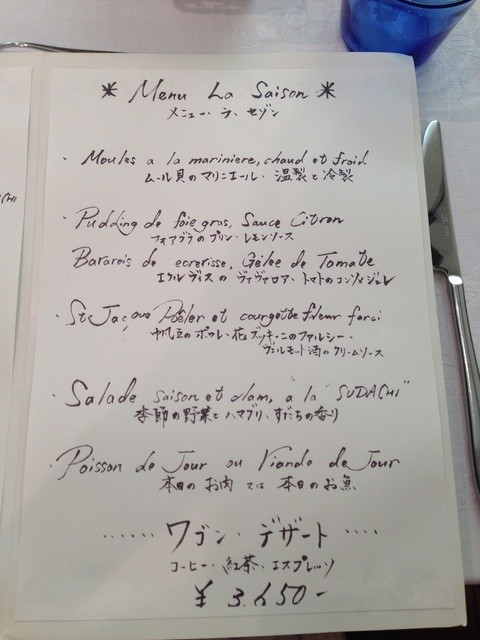 * Menu La Saison *
メニュー・ラ・セゾン
· Moules a la mariniere, chaud et froid
ムール貝のマリニエール・温製と冷製
· Pudding de foie gras, Sauce Citron
フォアグラのプリン・レモンソース
Bavarois de ecrerisse, Gelee de Tomate
エクルヴィスのヴァヴァロア、トマトのコンソメジュレ
· St-Jacque Poeler et courgette fleur farci
帆立のポワレ・花ズッキーニのファルシー・
ヴェルモット酒のクリームソース
· Salade saison et clam, a la "SUDACHI"
季節の野菜とハマグリ、すだちの香り
· Poisson de Jour ou Viande de Jour
本日のお肉 又は 本日のお魚
...... ワゴン・デザート ....
コーヒー・紅茶・エスプレッソ
¥ 3,650-